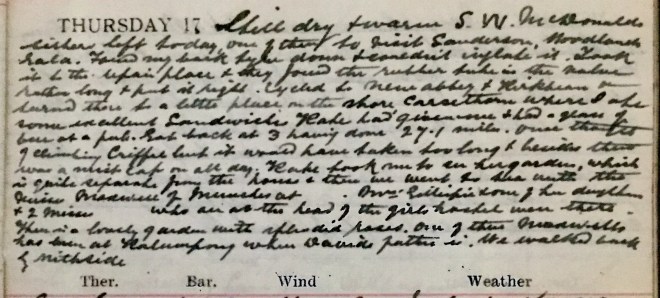 THURSDAY 17 Still dry & warm S.W. McDonalds
sister left today, one of them to visit Sanderson, Woodlands
Gala. Found my back tyre down & couldn't inflate it. Took
it to the repair place & they found the rubber tube in the valve
rotten long & put it right. Cycled to New abbey & Kirkbean &
turned there to a little place on the shore Carsethorn where I ate
some excellent sandwiches Kate had given me & had a glass of
beer at a pub. Got back at 3 having done 27.1 miles. Once thought
of climbing Criffel but it would have taken too long & besides there
was a mist cap on all day. Kate took me to see her garden, which
is quite separate from the house & then we went to tea with the
Misses Maxwell of Munches at Mrs Gillespie & one of her daughters
& 2 Misses who are at the head of the girls hostel were there.
There is a lovely garden with splendid roses. One of the Maxwells
has been at Kalimpong where Davids father is. We walked back
by Nithside
Ther. Bar. Wind Weather